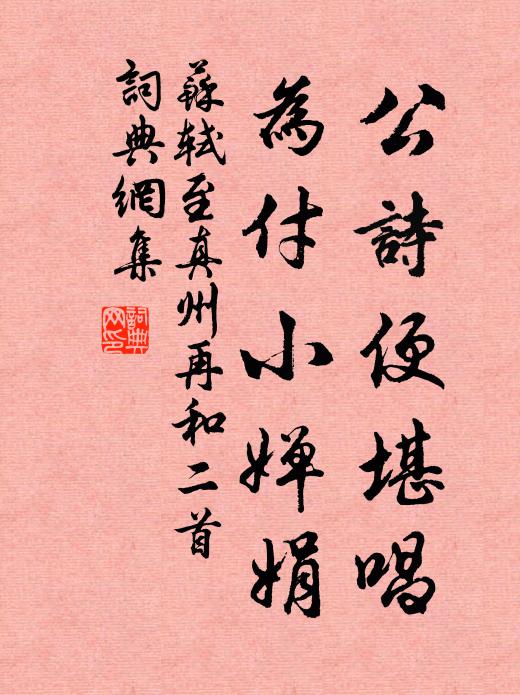 公詩便堪唱
為付小嬋娟
蘇軾至真州再和二首
詞典網集
詞典网印